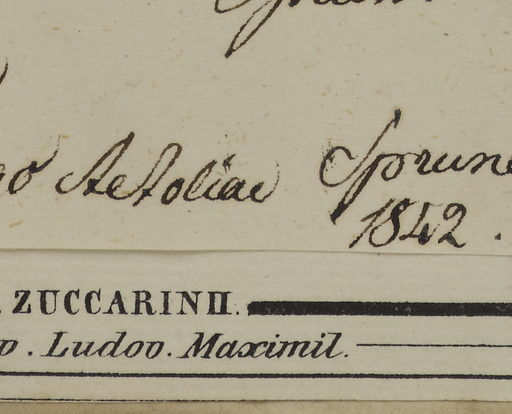 Aetoliae Sprune
1842.
ZUCCARINII.
Ludov. Maximil.